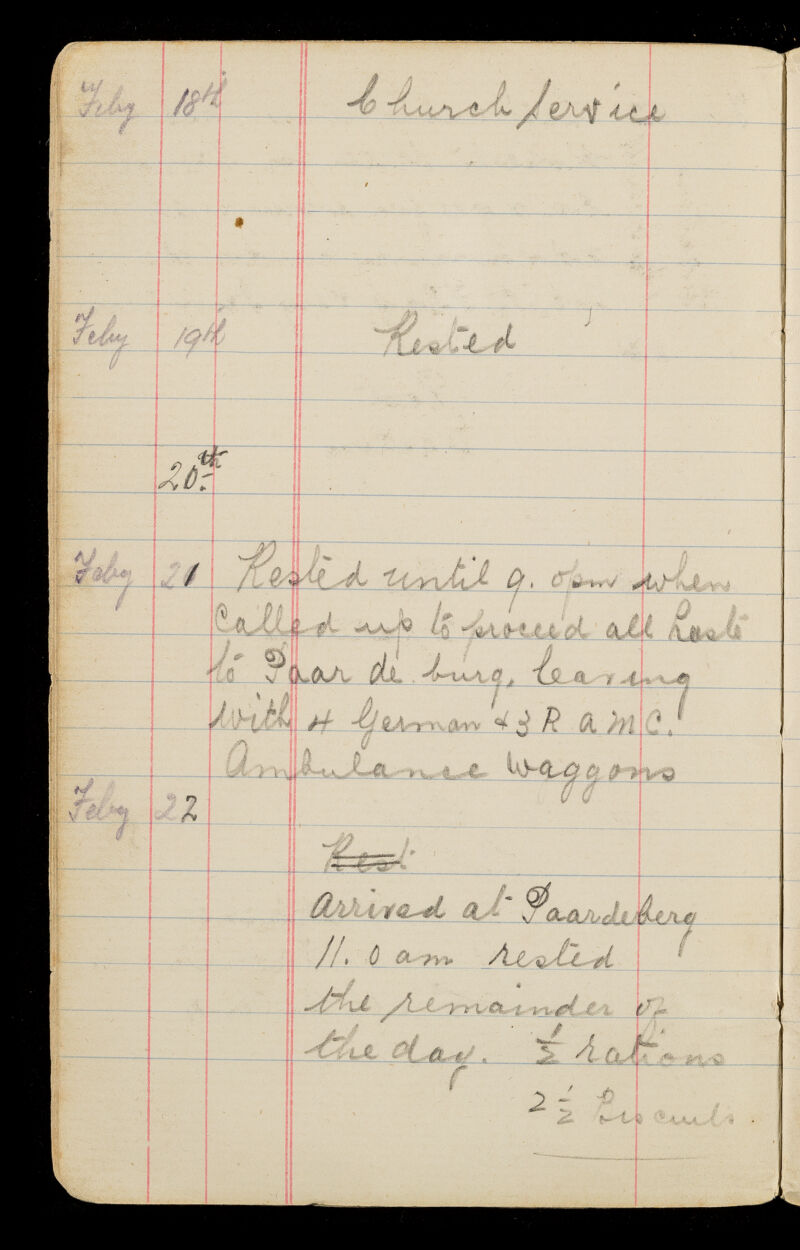 Feby 18th Church Service
Feby 19th Rested
20th
Feby 21 Rested until 9. opm when
called up to proceed all haste
to Paar de burg, leaving
with 4 German & 3 R A M C.
Ambulance Waggons
Feby 22
Rest
arrived at Paardeberg
11. 0 am rested
the remainder of
the day. ½ rations
2 ½ Biscuits